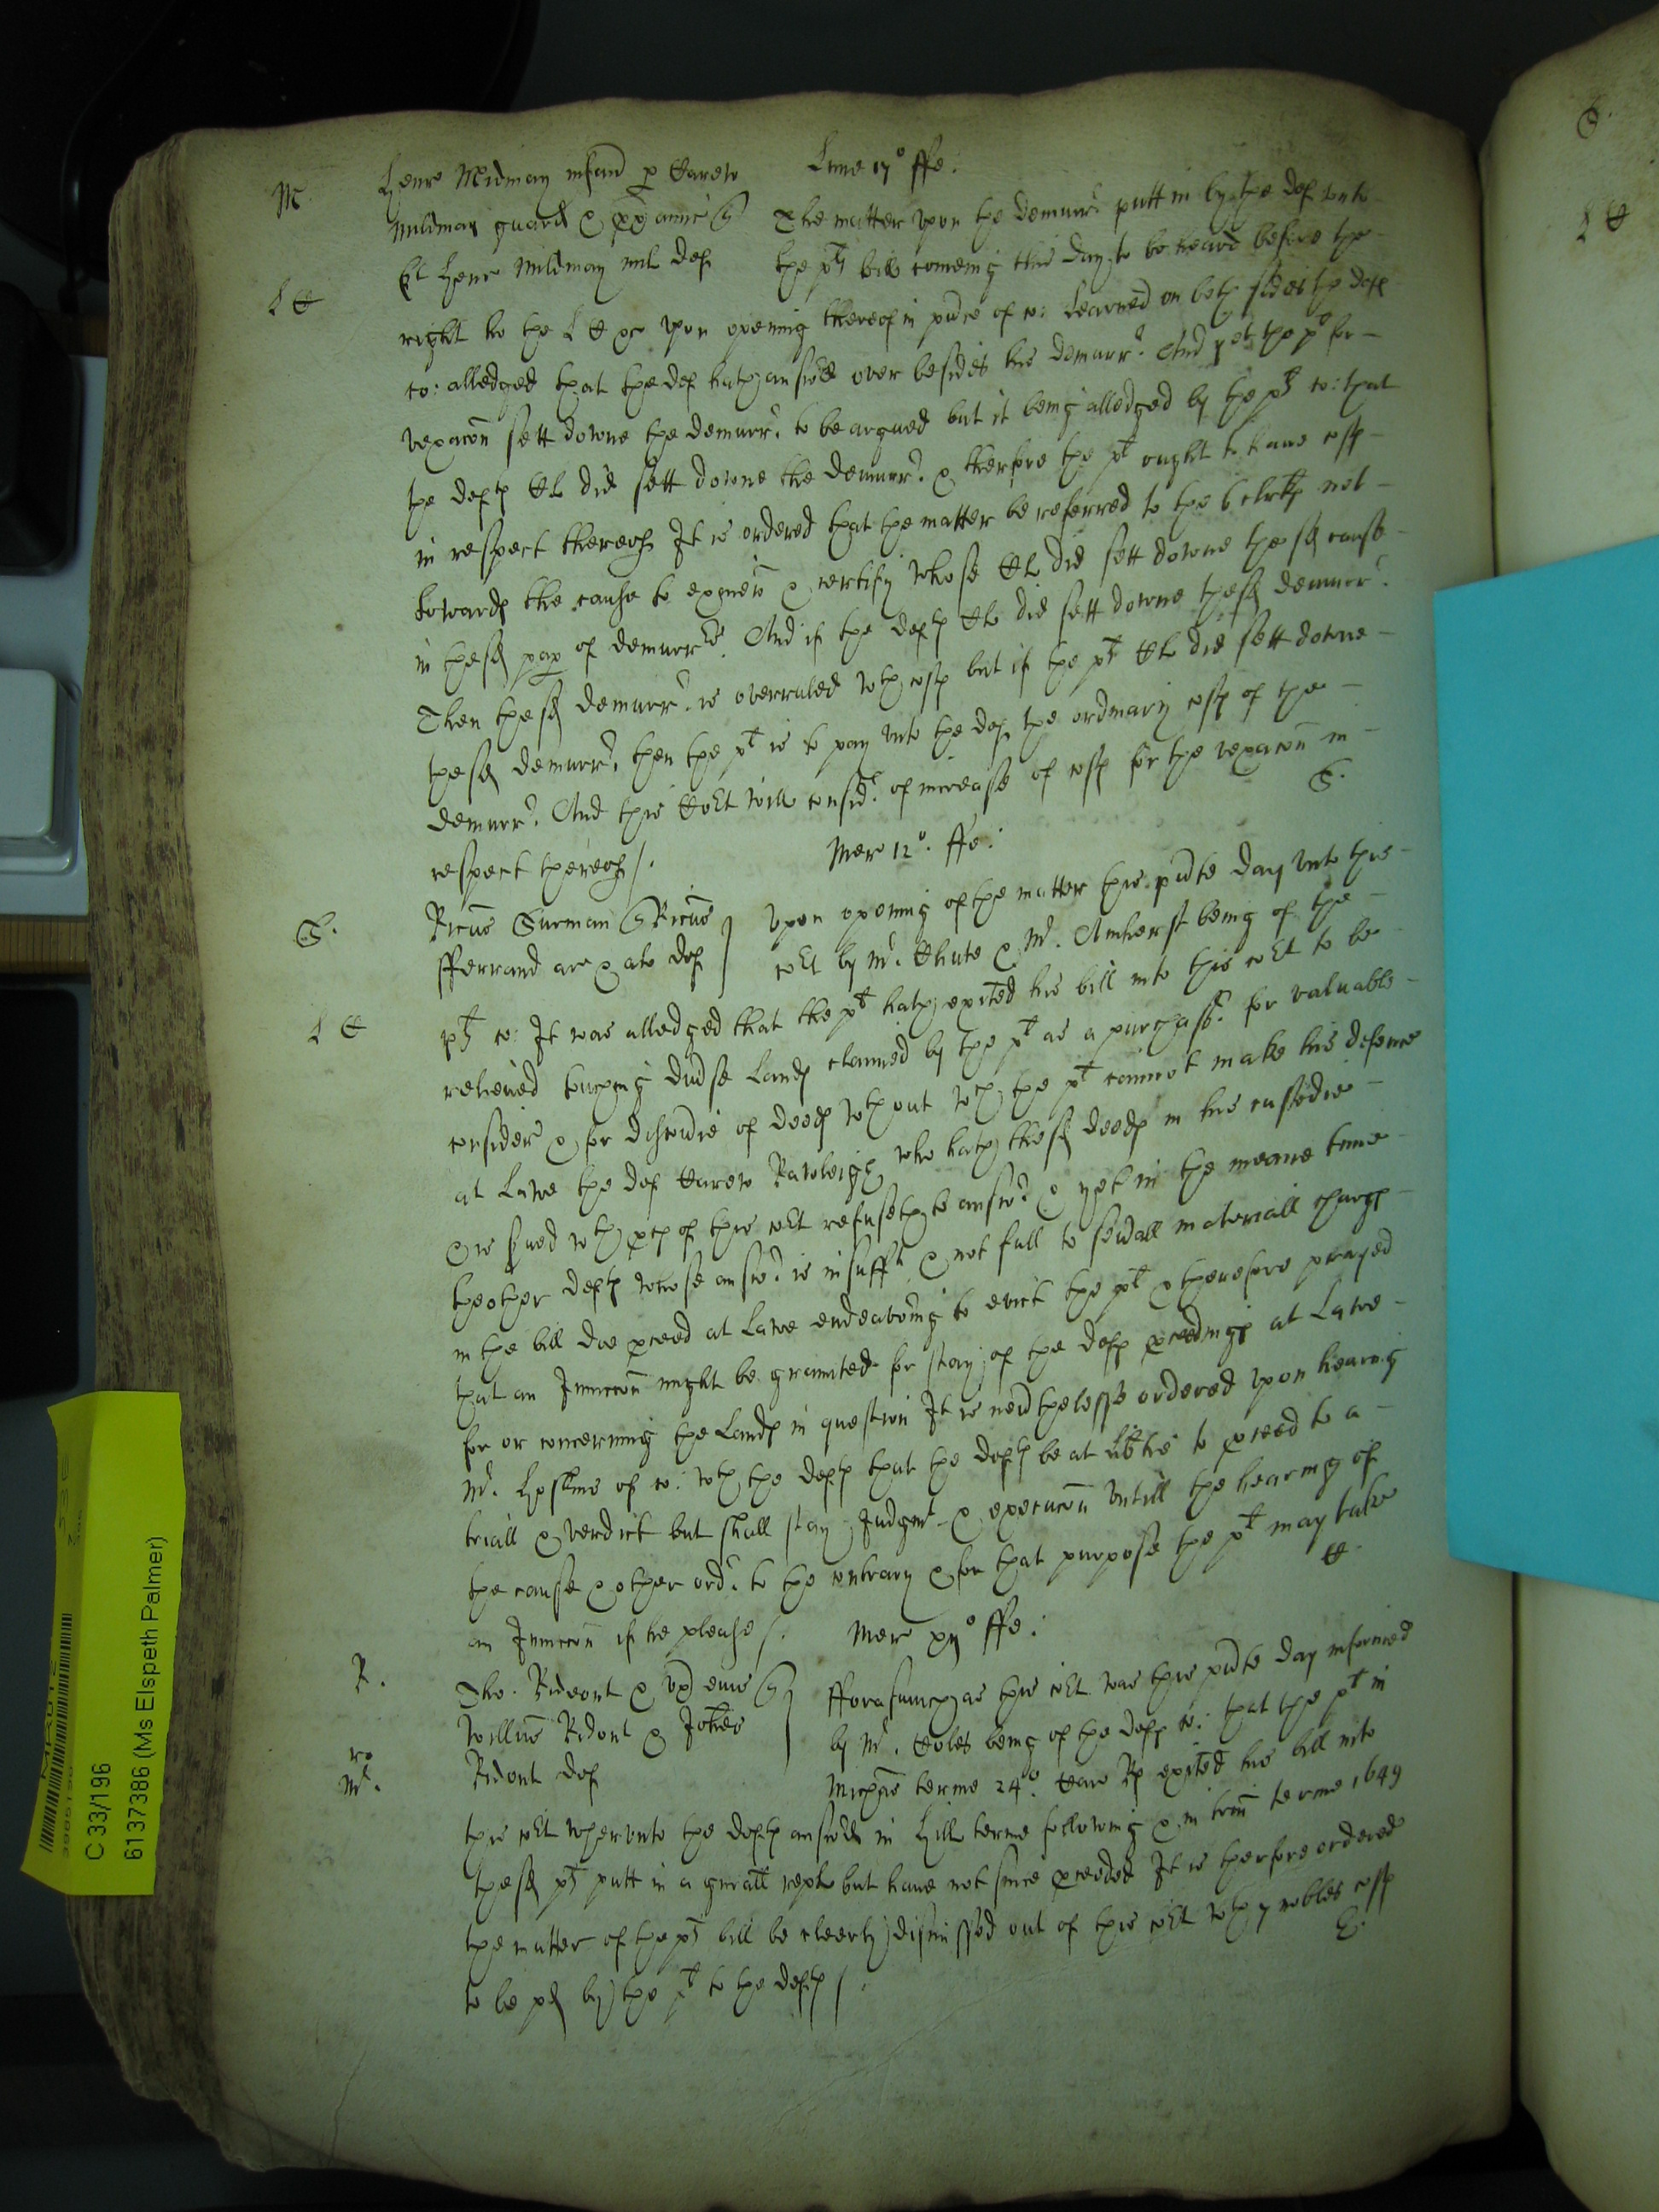 M. Henr Midmay infand p Carew Lune 17° ffe:
Mildmay guard & px amic § The matter vpon the demurr putt in by the def vnto
St Henr Mildmay mil def the plts bill comeing this day to be heard before the
L C right ho the L C &c vpon opening thereof in pnce of co: learned on both sides the defts
co: alledged that the def hath answd over besides his demurr. And yet the pt for
vexacon sett downe the demurr. to be argued but it being alledged by the plts co: that
the defts Cl did sett downe the demurr. & therfore the plt ought to haue costs
in respect thereof It is ordered that the matter be referred to the 6 clrks not
towards the cause to exmen & certify whose Cl did sett downe the sd cause
in the sd pap of demurrs. And if the defts Cl did sett downe the sd demurr.
Then the sd demurr. is overruled wth costs but if the plts Cl did sett downe
the sd demurr. then the plt is to pay vnto the def the ordinary costs of the
demurr. And this Cort will consid. of increase of costs for the vexacon in
respect thereof /. S.
Mer 12°. ffe:
S. Ricus Surman § Ricus Vpon opening of the matter this pnte day vnto this
fferrand ar & als def cort by Mr. Chute & Mr. Amherst being of the
L C plts co: It was alledged that the plt hath exited his bill into this cort to be
relieued touching diuse lands claimed by the plt as a purchasr. for valuable
consider & for discouie of deeds wthout wch the plt cannot make his defence
at lawe the def Carew Rawleigh who hath the sd deeds in his custodie
& is serued wth pces of this cort refuseth to answr & yet in the meane time
the other defts whose answr is insufft & not full to seuall materiall charges
in the bill doe pceed at lawe endeavoring to evict the plt & therefore prayed
that an Iniuccon might be graunted for stay of the defts pceedings at lawe
for or concerning the lands in question It is neuthelesse ordered vpon hearing
Mr. Hoskins of co: wth the defts that the defts be at libtie to pceed to a
triall & verdict but shall stay Iudgmt & execucon vntill the hearing of
the cause & other ordr. to the contrary & for that purpose the plt may take
an Iniuccon if he please /. C.
Mer xij° ffe:
R. Tho. Rideout & vx eius § fforasmuch as this cort was this pnte day informed
Willus Ridout & Iohes by Mr. Coles being of the defts co: that the plt in
Ridout def Michas terme 24°. Caro Rs exited his bill into
this cort wherevnto the defts answrd in Hill terme following & in trin terme 1649
the sd plts putt in a gnrall repl but haue not since pceeded It is therfore ordered
the matter of the plts bill be cleerly dismissed out of this cort wth 7 nobles costs
to be pd by the plt to the defts /. E.
C 33/196
6137386 (Ms Elspeth Palmer)